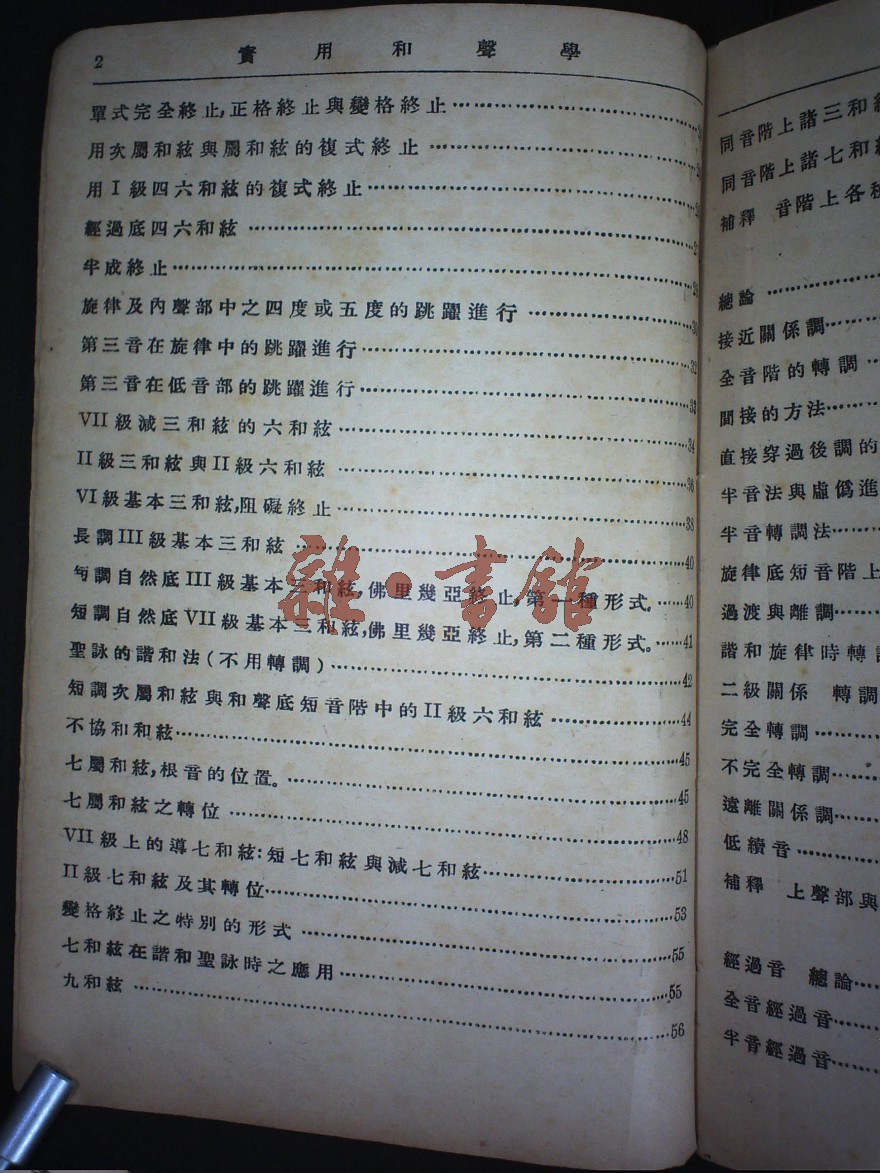 2 實用和聲學
單式完全終止,正格終止與變格終止
用次屬和絃與屬和絃的複式終止
用I級四六和絃的複式終止
經過底四六和絃
半成終止
旋律及內聲部中之四度或五度的跳躍進行
第三音在旋律中的跳躍進行……32
第三音在低音部的跳躍進行……33
VII級減三和絃的六和絃……34
II級三和絃與II級六和絃……36
VI級基本三和絃,阻礙終止……38
長調III級基本三和絃……40
調自然底III級基本三和絃,佛里幾亞終止,第一種形式。……40
短調自然底VII級基本三和絃,佛里幾亞終止,第二種形式。……41
聖詠的諧和法(不用轉調)……42
短調次屬和絃與和聲底短音階中的II級六和絃……44
不協和和絃……45
七屬和絃,根音的位置。……45
七屬和絃之轉位……48
VII級上的導七和絃:短七和絃與減七和絃……51
II級七和絃及其轉位……53
變格終止之特別的形式……55
七和絃在諧和聖詠時之應用……55
九和絃……56
雜·書館
同音階上諸三和
同音階上諸七和
補釋 音階上各種
總論……
接近關係調……
全音階的轉調……
間接的方法……
直接穿過後調的
半音法與虛僞進
半音轉調法……
旋律底短音階上
過渡與離調……
諧和旋律時轉
二級關係 轉調
完全轉調……
不完全轉調……
遠離關係調……
低續音……
補釋 上聲部與
經過音 總論……
全音經過音……
半音經過音……